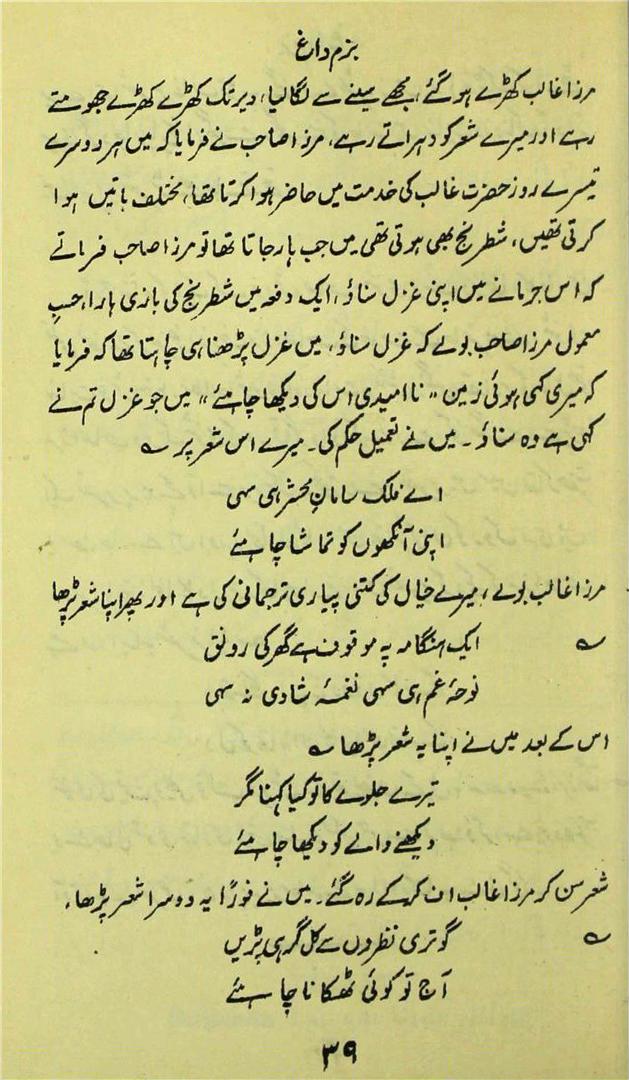 بزم داغ
مرزا غالب کھڑے ہو گئے، مجھے سینے سے لگا لیا، دیر تک کھڑے کھڑے جھومتے
رہے اور میرے شعر کو دہراتے رہے، مرزا صاحب نے فرمایا کہ میں ہر دوسرے
تیسرے روز حضرت غالب کی خدمت میں حاضر ہوا کرتا تھا، مختلف باتیں ہوا
کرتی تھیں، شطرنج بھی ہوتی تھی میں جب ہار جاتا تھا تو مرزا صاحب فرماتے
کہ اس جرمانے میں اپنی غزل سناؤ، ایک دفعہ میں شطرنج کی بازی ہارا، حسبِ
معمول مرزا صاحب بولے کہ غزل سناؤ، میں غزل پڑھنا ہی چاہتا تھا کہ فرمایا
کہ میری کہی ہوئی زمین "نا امیدی اس کی دیکھا چاہئے" میں جو غزل تم نے
کہی ہے وہ سناؤ۔ میں نے تعمیل حکم کی۔ میرے اس شعر پر ؎
اے فلک سامانِ محشر ہی سہی
اپنی آنکھوں کو تماشا چاہئے
مرزا غالب بولے، میرے خیال کی کتنی پیاری ترجمانی کی ہے اور پھر اپنا شعر پڑھا
؎ ایک ہنگامہ پہ موقوف ہے گھر کی رونق
نوحۂ غم ہی سہی نغمۂ شادی نہ سہی
اس کے بعد میں نے اپنا یہ شعر پڑھا ؎
تیرے جلوے کا تو کیا کہنا مگر
دیکھنے والے کو دیکھا چاہئے
شعر سن کر مرزا غالب اف کر کے رہ گئے۔ میں نے فوراً یہ دوسرا شعر پڑھا،
؎ گو تری نظروں سے کل گر ہی پڑیں
آج تو کوئی ٹھکانا چاہئے
۳۹